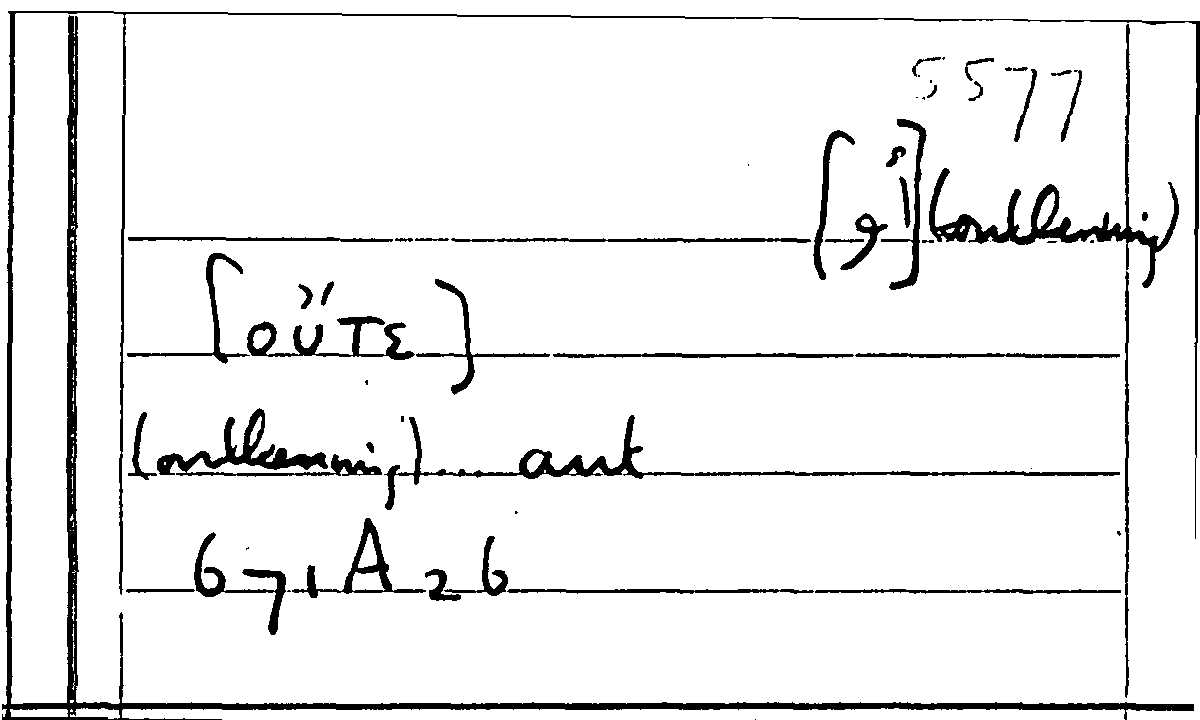 5577
[أو] (ontkenning)
[οὔτε]
(ontkenning) ... aut
671A26